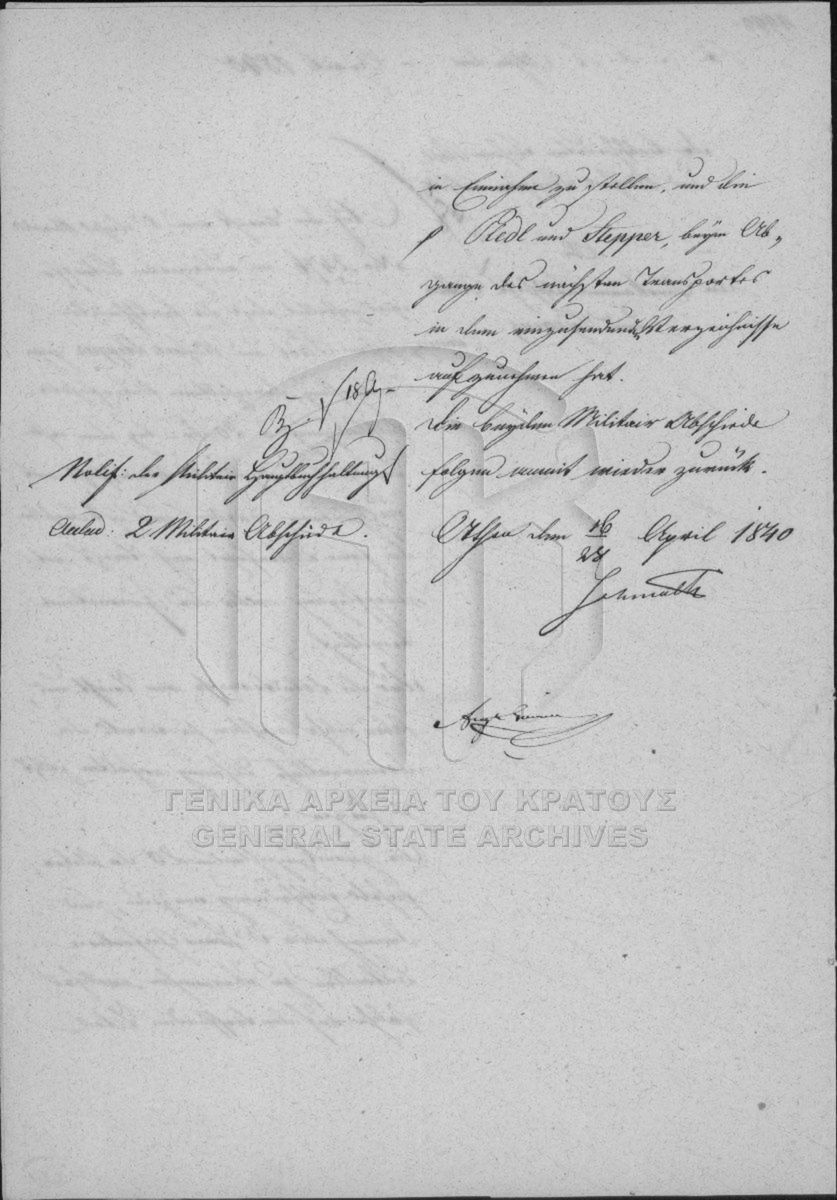 in Einnahme zu stellen, und die
p Riedl und Stepper, beym Ab-
gange des nächsten Transportes
in dem einzusendenden Verzeichnisse
aufzunehmen hat.
Die beyden Militair Abschiede
folgen anmit wieder zurück.
Athen den 16/28 April 1840
Schmaltz
Notif: der Militair Hauptbuchhaltung
2 Militair Abschiede.
ΓΕΝΙΚΑ ΑΡΧΕΙΑ ΤΟΥ ΚΡΑΤΟΥΣ
GENERAL STATE ARCHIVES